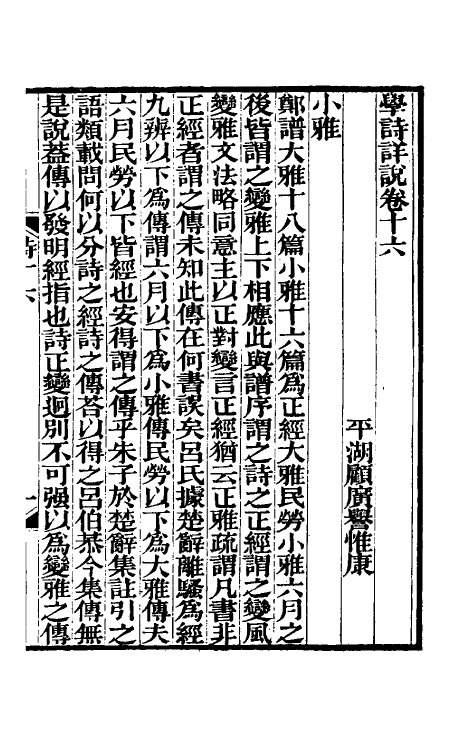 學詩詳說卷十六
平湖顧廣譽惟康
小雅
鄭譜大雅十八篇小雅十六篇爲正經大雅民勞小雅六月之
後皆謂之變雅上下相應此與譜序謂之詩之正經謂之變風
變雅文法略同意主以正對變言正經猶云正雅疏謂凡書非
正經者謂之傳未知此傳在何書誤矣呂氏據楚辭離騷爲經
九辨以下爲傳謂六月以下爲小雅傳民勞以下爲大雅傳夫
六月民勞以下皆經也安得謂之傳乎朱子於楚辭集註引之
語類載問何以分詩之經詩之傳荅以得之呂伯恭今集傳無
是說葢傳以發明經指也詩正變迥別不可强以爲變雅之傳
詩十六
一